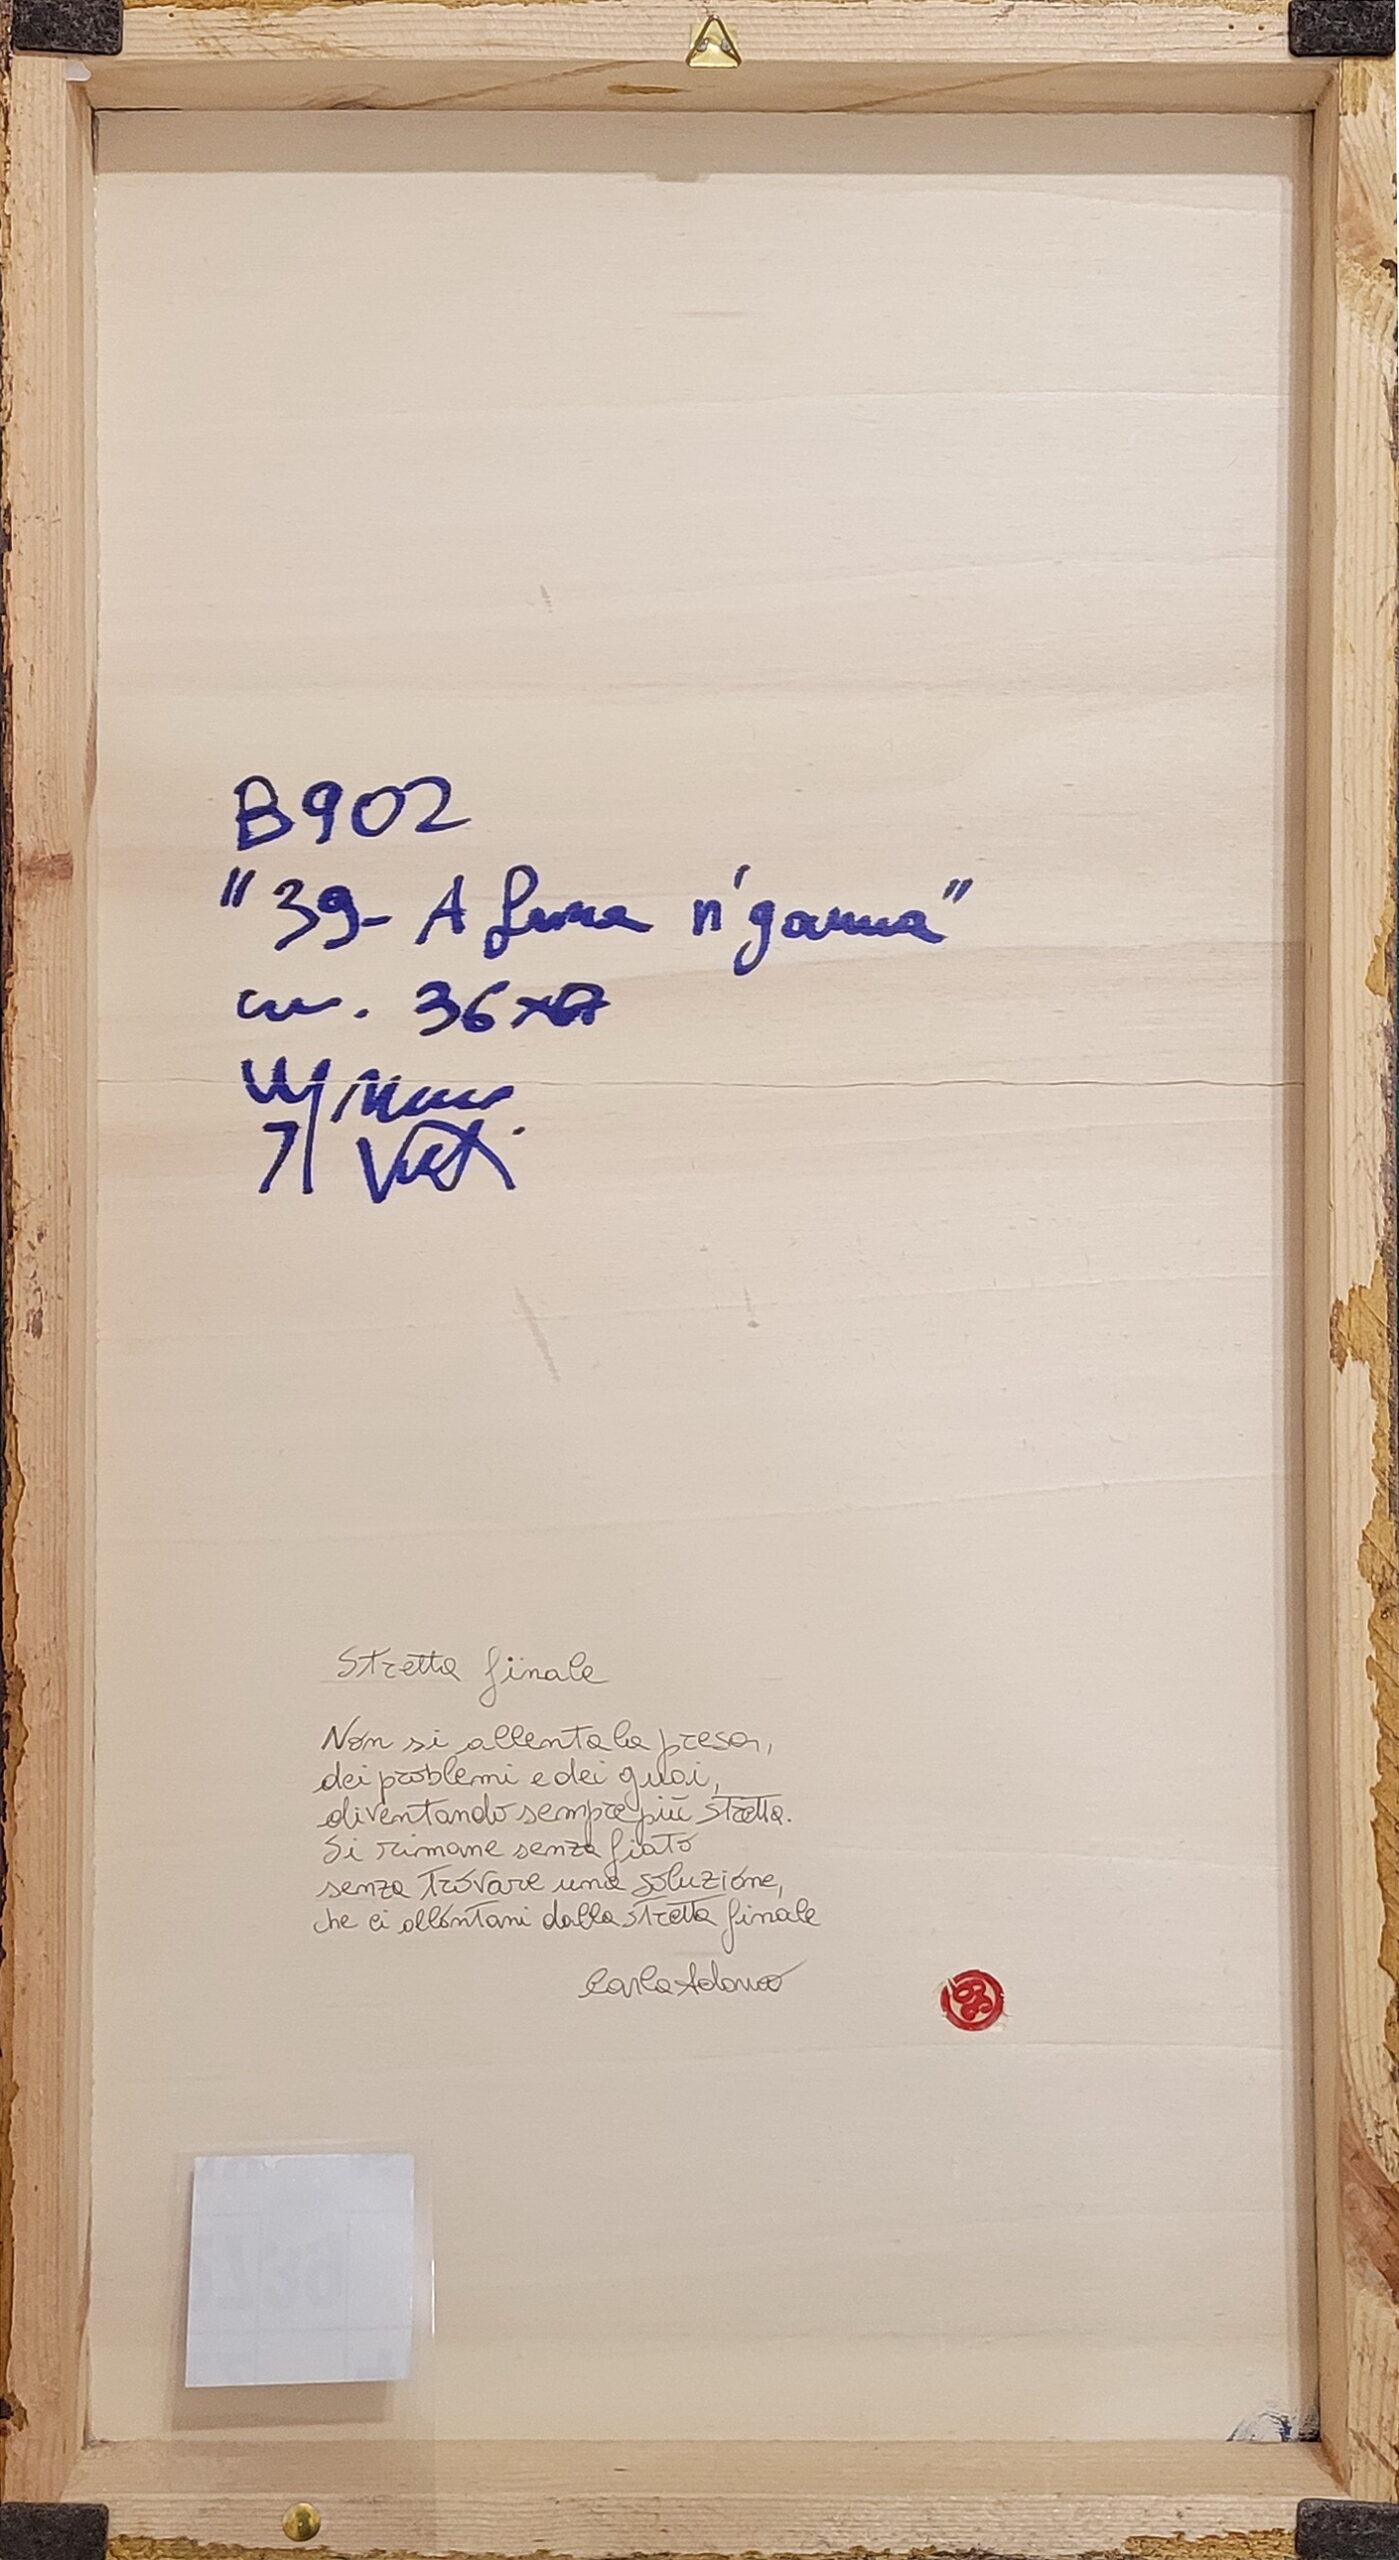 B902
"39- A fune n'ganna"
cm. 36x67
Stretta finale
Non si allenta la presa,
dei problemi e dei guai,
diventando sempre più stretta.
Si rimane senza fiato
senza trovare una soluzione,
che ci allontani dalla stretta finale
Carla Adamo